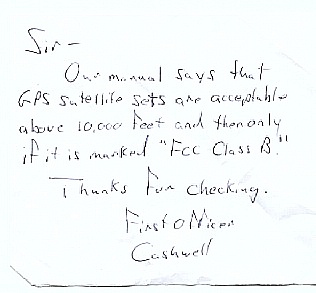 Sir -
Our manual says that
GPS satellite sets are acceptable
above 10,000 feet and then only
if it is marked "FCC Class B."
Thanks for checking.
First Officer
Cashwell